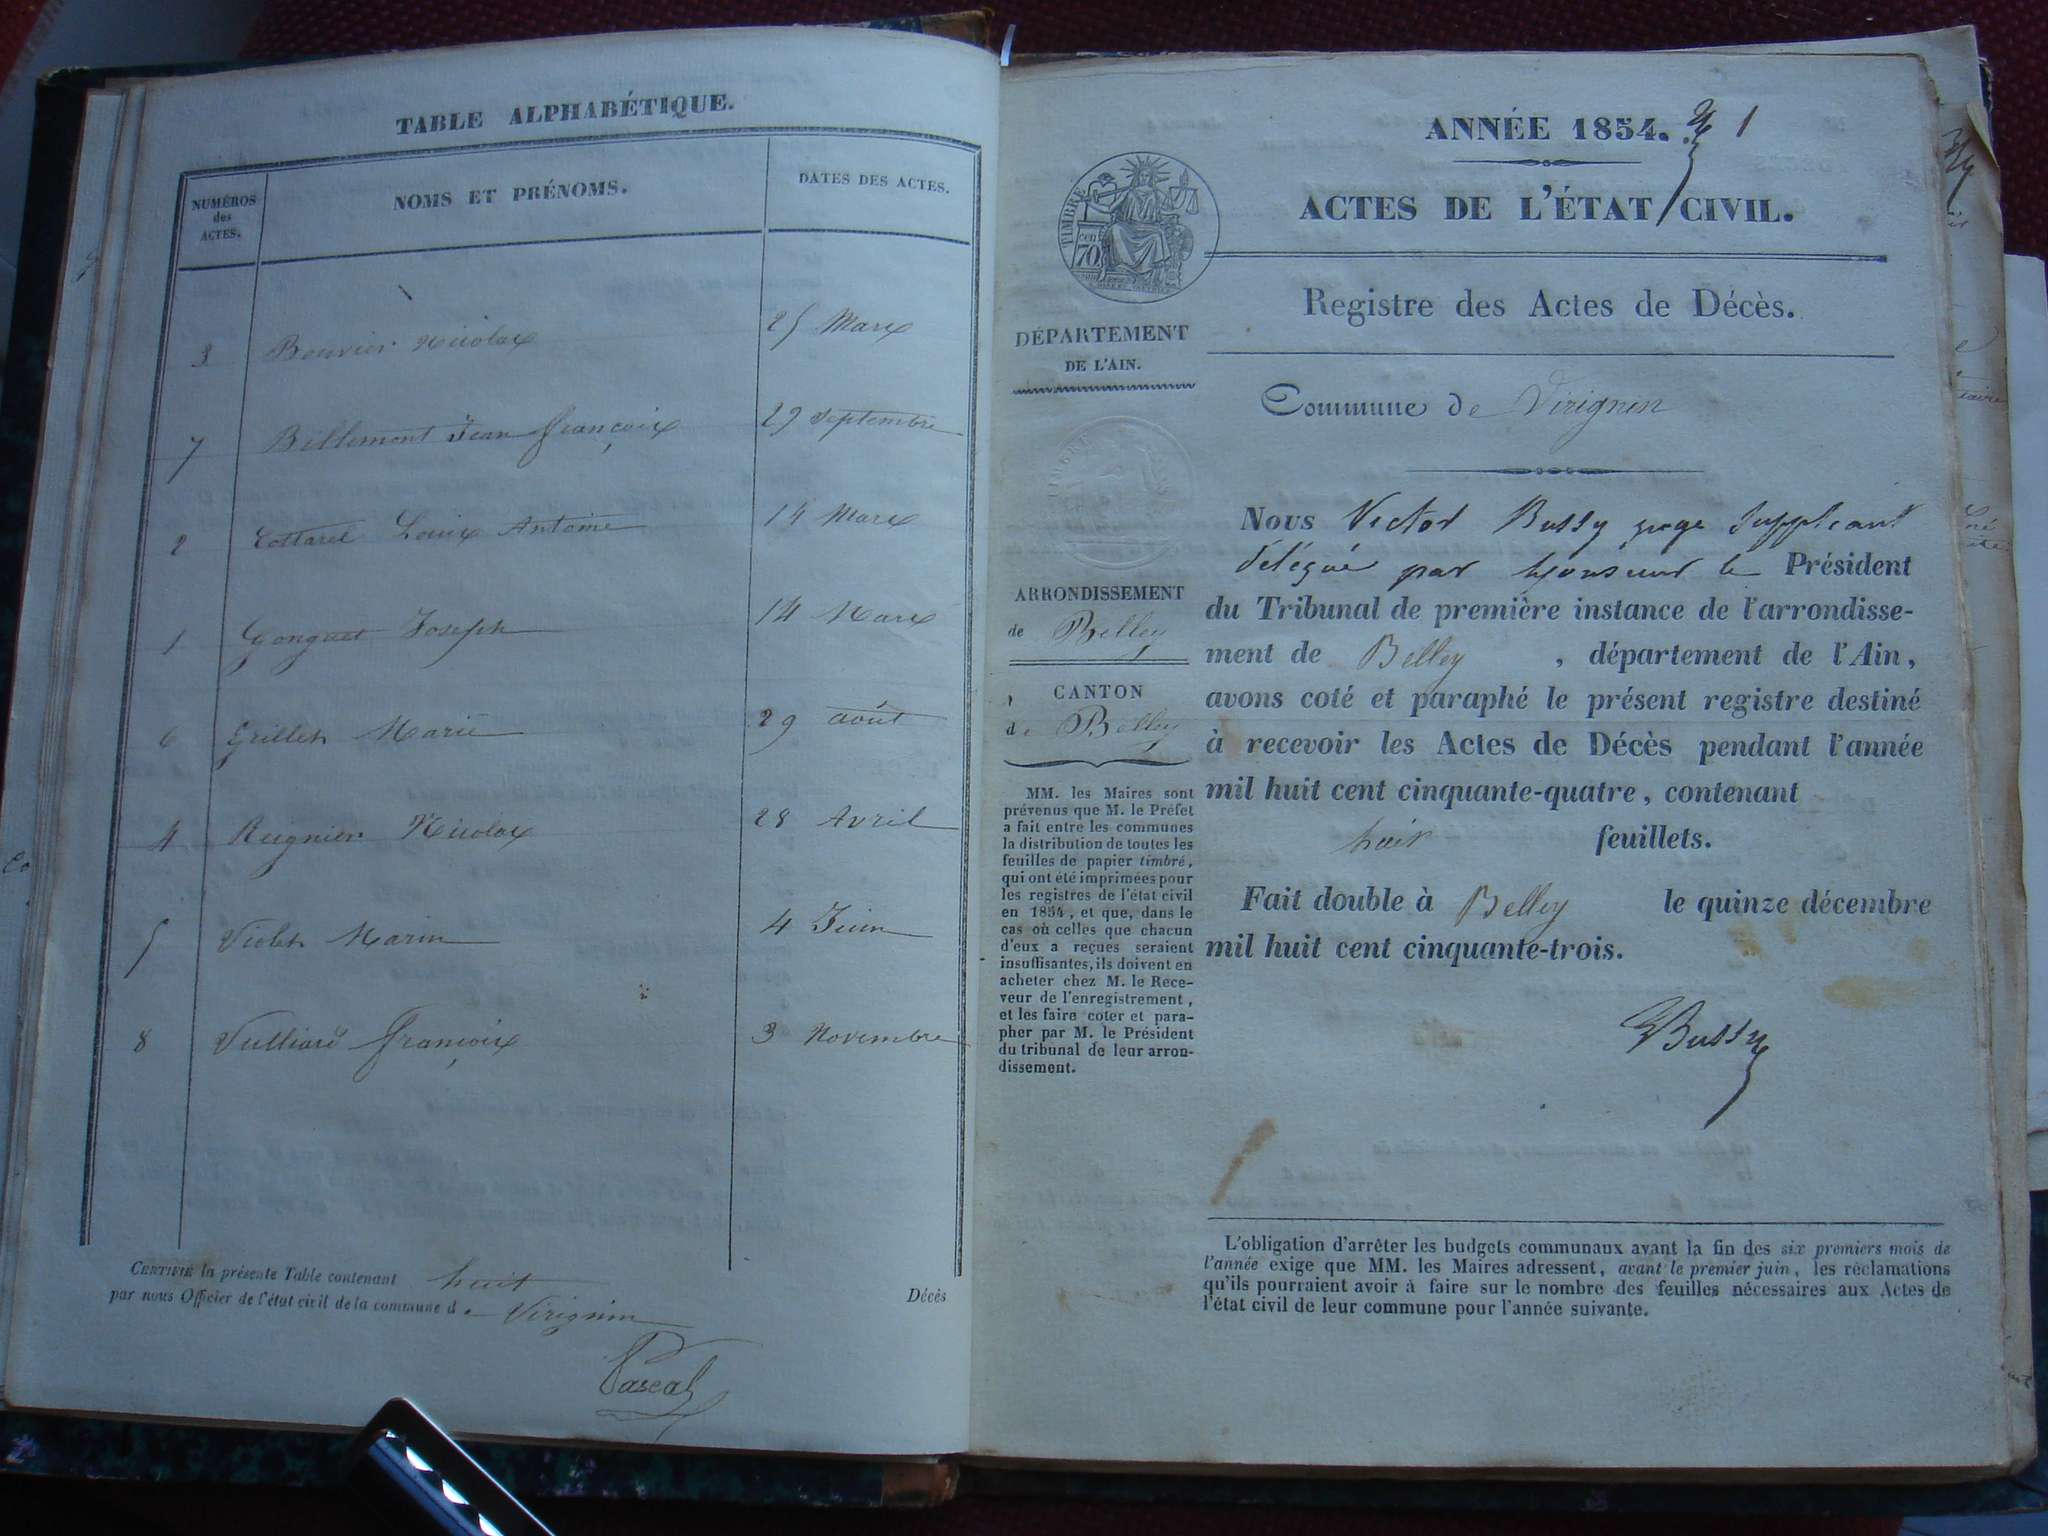 TABLE ALPHABÉTIQUE.
NUMÉROS des ACTES. NOMS ET PRÉNOMS. DATES DES ACTES.
3 Bouvier Nicolas 25 Mars
7 Billemont Jean François 29 Septembre
2 Cottarel Louis Antoine 14 Mars
1 Gonguet Joseph 14 Mars
6 Grillet Marie 29 août
4 Reignier Nicolas 28 Avril
5 Violet Marin 4 Juin
8 Vulliard François 3 Novembre
CERTIFIÉ la présente Table contenant huit Décès
par nous Officier de l'état civil de la commune de Virignin
Pascal
ANNÉE 1854. 1
ACTES DE L'ÉTAT CIVIL.
TIMBRE
cen
70
Registre des Actes de Décès.
DÉPARTEMENT
DE L'AIN.
Commune de Virignin
ARRONDISSEMENT
de Belley
CANTON
de Belley
MM. les Maires sont
prévenus que M. le Préfet
a fait entre les communes
la distribution de toutes les
feuilles de papier timbré,
qui ont été imprimées pour
les registres de l'état civil
en 1854, et que, dans le
cas où celles que chacun
d'eux a reçues seraient
insuffisantes, ils doivent en
acheter chez M. le Rece-
veur de l'enregistrement,
et les faire coter et para-
pher par M. le Président
du tribunal de leur arron-
dissement.
Nous Victor Bussy juge Suppléant
délégué par Monsieur le Président
du Tribunal de première instance de l'arrondisse-
ment de Belley, département de l'Ain,
avons coté et paraphé le présent registre destiné
à recevoir les Actes de Décès pendant l'année
mil huit cent cinquante-quatre, contenant
huit feuillets.
Fait double à Belley le quinze décembre
mil huit cent cinquante-trois.
Bussy
L'obligation d'arrêter les budgets communaux avant la fin des six premiers mois de
l'année exige que MM. les Maires adressent, avant le premier juin, les réclamations
qu'ils pourraient avoir à faire sur le nombre des feuilles nécessaires aux Actes de
l'état civil de leur commune pour l'année suivante.